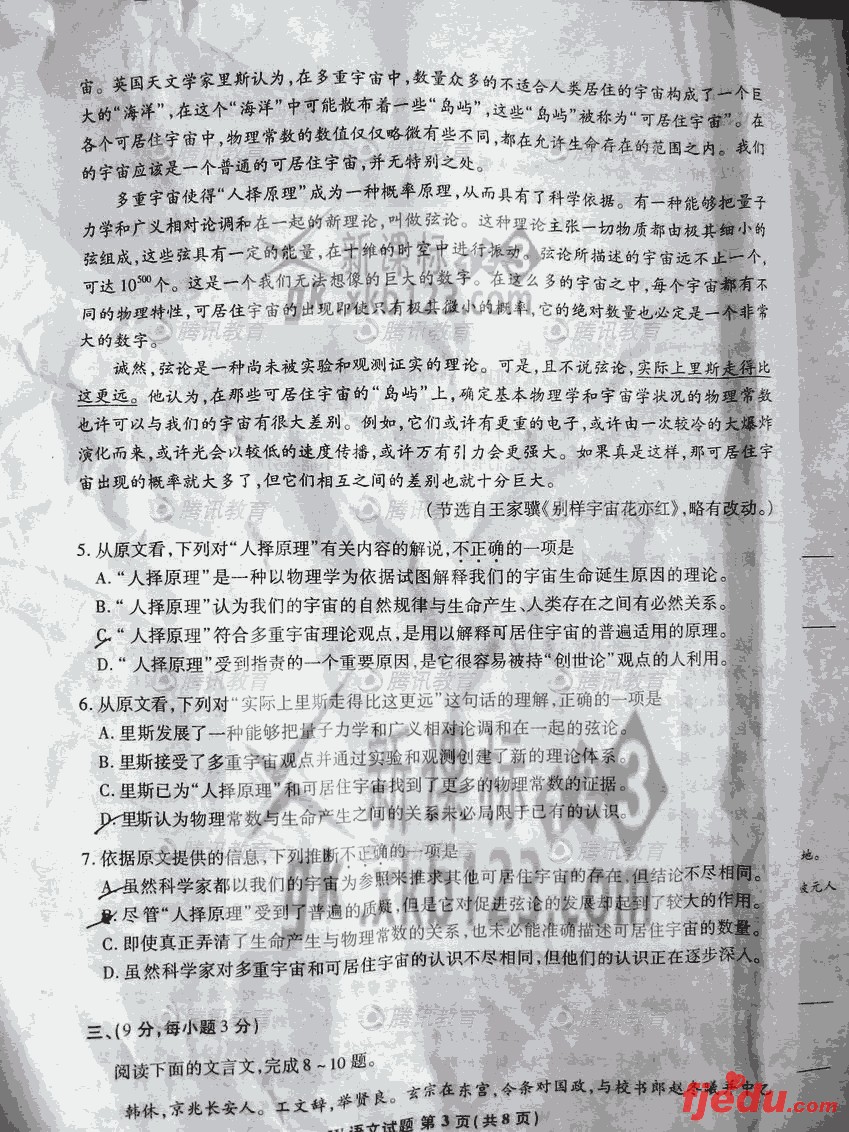 宙。英国天文学家里斯认为,在多重宇宙中,数量众多的不适合人类居住的宇宙构成了一个巨
大的“海洋”,在这个“海洋”中可能散布着一些“岛屿”,这些“岛屿”被称为“可居住宇宙”。在
各个可居住宇宙中,物理常数的数值仅仅略微有些不同,都在允许生命存在的范围之内。我们
的宇宙应该是一个普通的可居住宇宙,并无特别之处。
多重宇宙使得“人择原理”成为一种概率原理,从而具有了科学依据。有一种能够把量子
力学和广义相对论调和在一起的新理论,叫做弦论。这种理论主张一切物质都由极其细小的
弦组成,这些弦具有一定的能量,在十维的时空中进行振动。弦论所描述的宇宙远不止一个,
可达10⁵⁰⁰个。这是一个我们无法想像的巨大的数字。在这么多的宇宙之中,每个宇宙都有不
同的物理特性,可居住宇宙的出现即使只有极其微小的概率,它的绝对数量也必定是一个非常
大的数字。
诚然,弦论是一种尚未被实验和观测证实的理论。可是,且不说弦论,实际上里斯走得比
这更远。他认为,在那些可居住宇宙的“岛屿”上,确定基本物理学和宇宙学状况的物理常数
也许可以与我们的宇宙有很大差别。例如,它们或许有更重的电子,或许由一次较冷的大爆炸
演化而来,或许光会以较低的速度传播,或许万有引力会更强大。如果真是这样,那可居住宇
宙出现的概率就大多了,但它们相互之间的差别也就十分巨大。
(节选自王家骥《别样宇宙花亦红》,略有改动。)
5. 从原文看,下列对“人择原理”有关内容的解说,不正确的一项是
A. “人择原理”是一种以物理学为依据试图解释我们的宇宙生命诞生原因的理论。
B. “人择原理”认为我们的宇宙的自然规律与生命产生、人类存在之间有必然关系。
C. “人择原理”符合多重宇宙理论观点,是用以解释可居住宇宙的普遍适用的原理。
D. “人择原理”受到指责的一个重要原因,是它很容易被持“创世论”观点的人利用。
6. 从原文看,下列对“实际上里斯走得比这更远”这句话的理解,正确的一项是
A. 里斯发展了一种能够把量子力学和广义相对论调和在一起的弦论。
B. 里斯接受了多重宇宙观点并通过实验和观测创建了新的理论体系。
C. 里斯已为“人择原理”和可居住宇宙找到了更多的物理常数的证据。
D. 里斯认为物理常数与生命产生之间的关系未必局限于已有的认识。
7. 依据原文提供的信息,下列推断不正确的一项是
A. 虽然科学家都以我们的宇宙为参照来推求其他可居住宇宙的存在,但结论不尽相同。
B. 尽管“人择原理”受到了普遍的质疑,但是它对促进弦论的发展却起到了较大的作用。
C. 即使真正弄清了生命产生与物理常数的关系,也未必能准确描述可居住宇宙的数量。
D. 虽然科学家对多重宇宙和可居住宇宙的认识不尽相同,但他们的认识正在逐步深入。
三、(9分,每小题3分)
阅读下面的文言文,完成8~10题。
韩休,京兆长安人。工文辞,举贤良。玄宗在东宫,令条对国政,与校书郎赵冬曦并中乙
语文试题 第3页(共8页)
地。
元人
新课标
gkao123.com
3
腾讯教育
fjedu.com